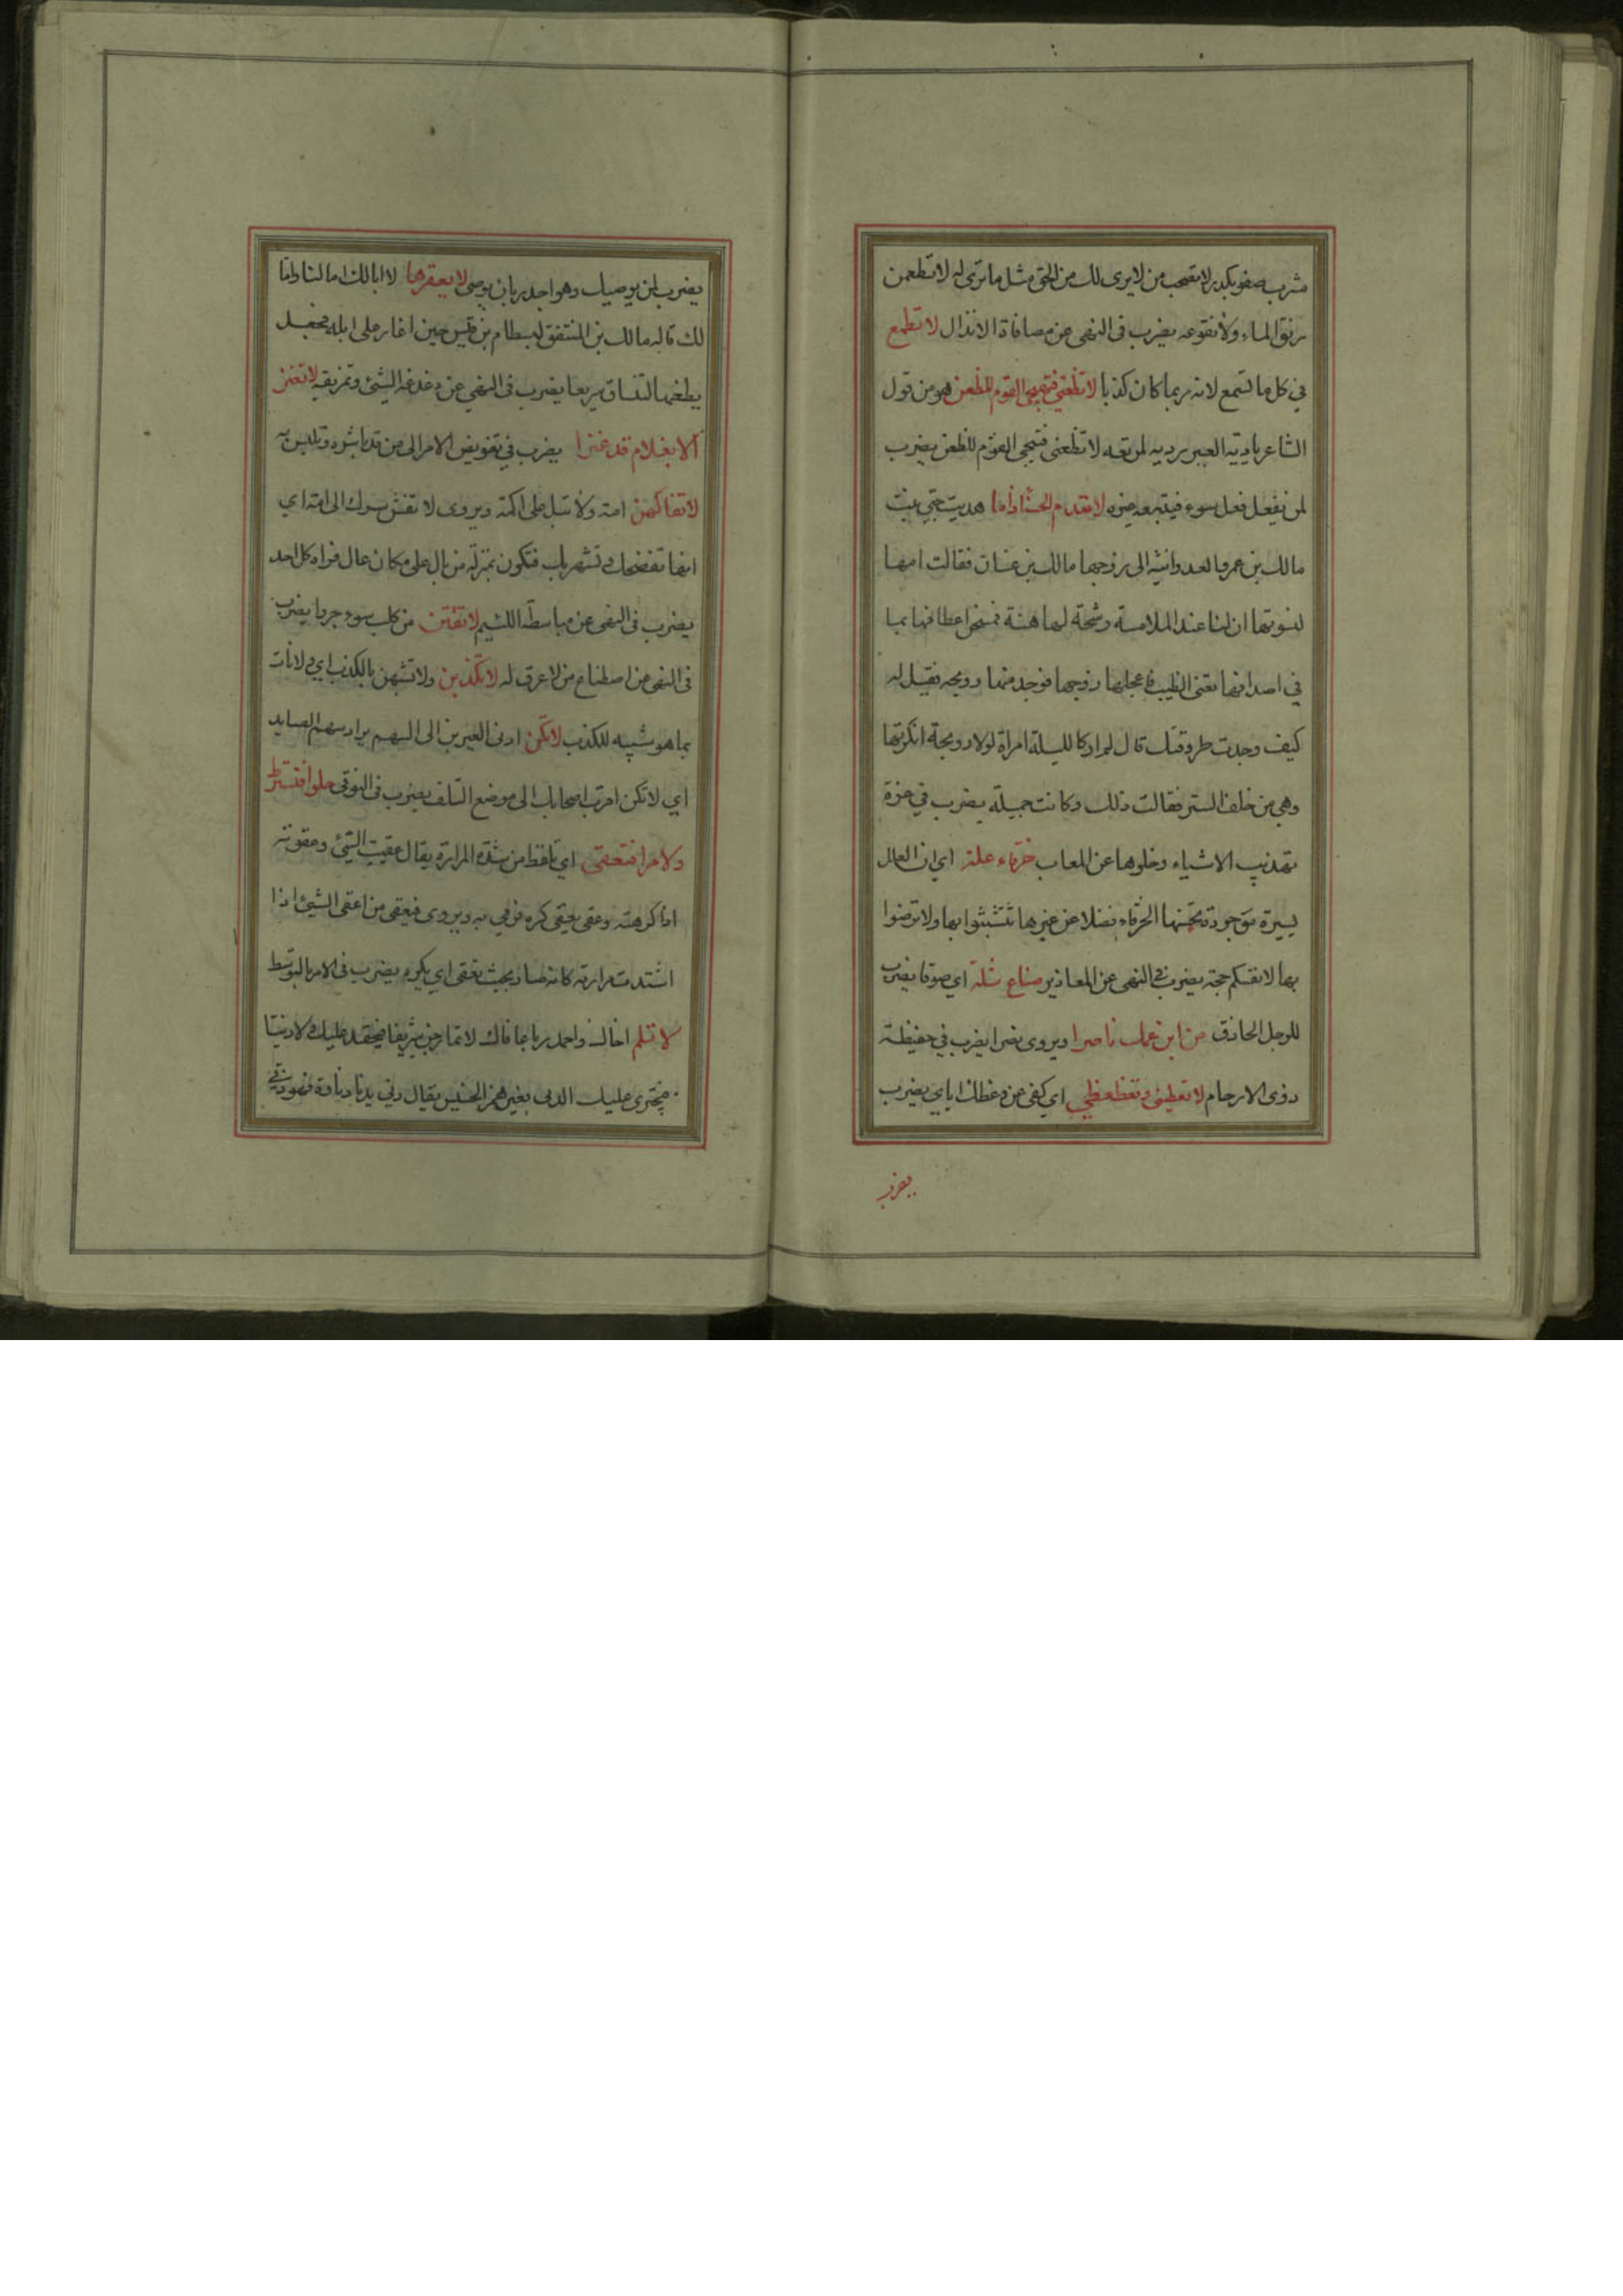 مشرب صفو بكدر لا تصحب من لا يرى لك من الحق مثل ما ترى له لا تطعمن
رنق الماء ولا نقوعه يضرب فى النهى عن مصافاة الانذال لا تطمع
في كل ما تسمع لانه ربما كان كذبا لا تظعني فتهيجي القوم للظعن هو من قول
الشاعر يا دية العبر لم تعه لا تظعنى فتهيجى القوم للظعن يضرب
لمن يفعل فعل سوء فيتبعه غيره لا تعدم الحسناء ذاما هديت حبي بنت
مالك بن عمرو العدوانية الى زوجها مالك بن غسان فقالت امها
لنسوتها ان لنا عند الملامسة رشحة لها هنة فمسحن اعطافها بما
في اصدافها يعنى الطيب فاعجلها زوجها فوجد منها رويحه فقيل له
كيف وجدت طروقتك قال لم ار كالليلة امراة لولا رويحة انكرتها
وهى من خلف الستر فقالت ذلك وكانت جميلة يضرب في عزة
تهذيب الاشياء وخلوها عن المعاب خرقاء علة اي ان العلل
يسيرة موجودة تحسنها الخرقاء فضلا عن غيرها تتشبثوا بها ولا ترضوا
بها لانفسكم حجة يضرب فى النهى عن المعاذير صناع ثلة اي صوفا يضرب
للرجل الحاذق من ابن عمك ناصرا ويروى نصرا يضرب في حفيظة
ذوى الارحام لا تعظينى وتعظعظي اي كفى عن وعظك اياي يضرب
يضرب
يضرب لمن يوصيك وهو اجدر بان يوصى لا يعقرها لا ابالك اما لنا واما
لك قاله مالك بن المنتفق لبسطام بن قيس حين اغار على ابله فجعل
يطعنها لتنساق سريعا يضرب فى النهي عن الشئ وتمزيقه لا تغز
الا بغلام قد غزا يضرب في تفويض الامر الى من قد باشره وتلبس به
لا تفاكهن امة ولا تبل على اكمة ويروى لا تفش سرك الى امة اي
انها تفضحك وتشهر بك فتكون بمنزلة من بال على مكان عال فراه كل احد
يضرب فى النهى عن مباسطة اللئيم لا تقتن من كلب سوء جروا يضرب
فى النهى من اصطناع من لا عرق له لا تكذبن ولا تشبهن بالكذب اي ولا تأت
بما هو شبيه للكذب لا تكن ادنى العيرين الى السهم يراد سهم الصايد
اي لا تكن اقرب اصحابك الى موضع التلف يضرب فى التوقى حلوا فتسترط
ولا مرا فتعقى اي تلفظ من شدة المرارة يقال عقيت الشئ وعقوته
اذا كرهته وعقى يعقى كره فرمي به ويروى فتعقى من اعقى الشيئ اذا
اشتدت مرارته كانه صار بحيث يعقى اي يكره يضرب فى الامر بالتوسط
لا تلم اخاك واحمد ربا عافاك لا تمازحن شريفا فيحقد عليك ولا دنيا
فيجترى عليك الدنى بغير همز الخسيس يقال دني يدنا دناوة فهو دني